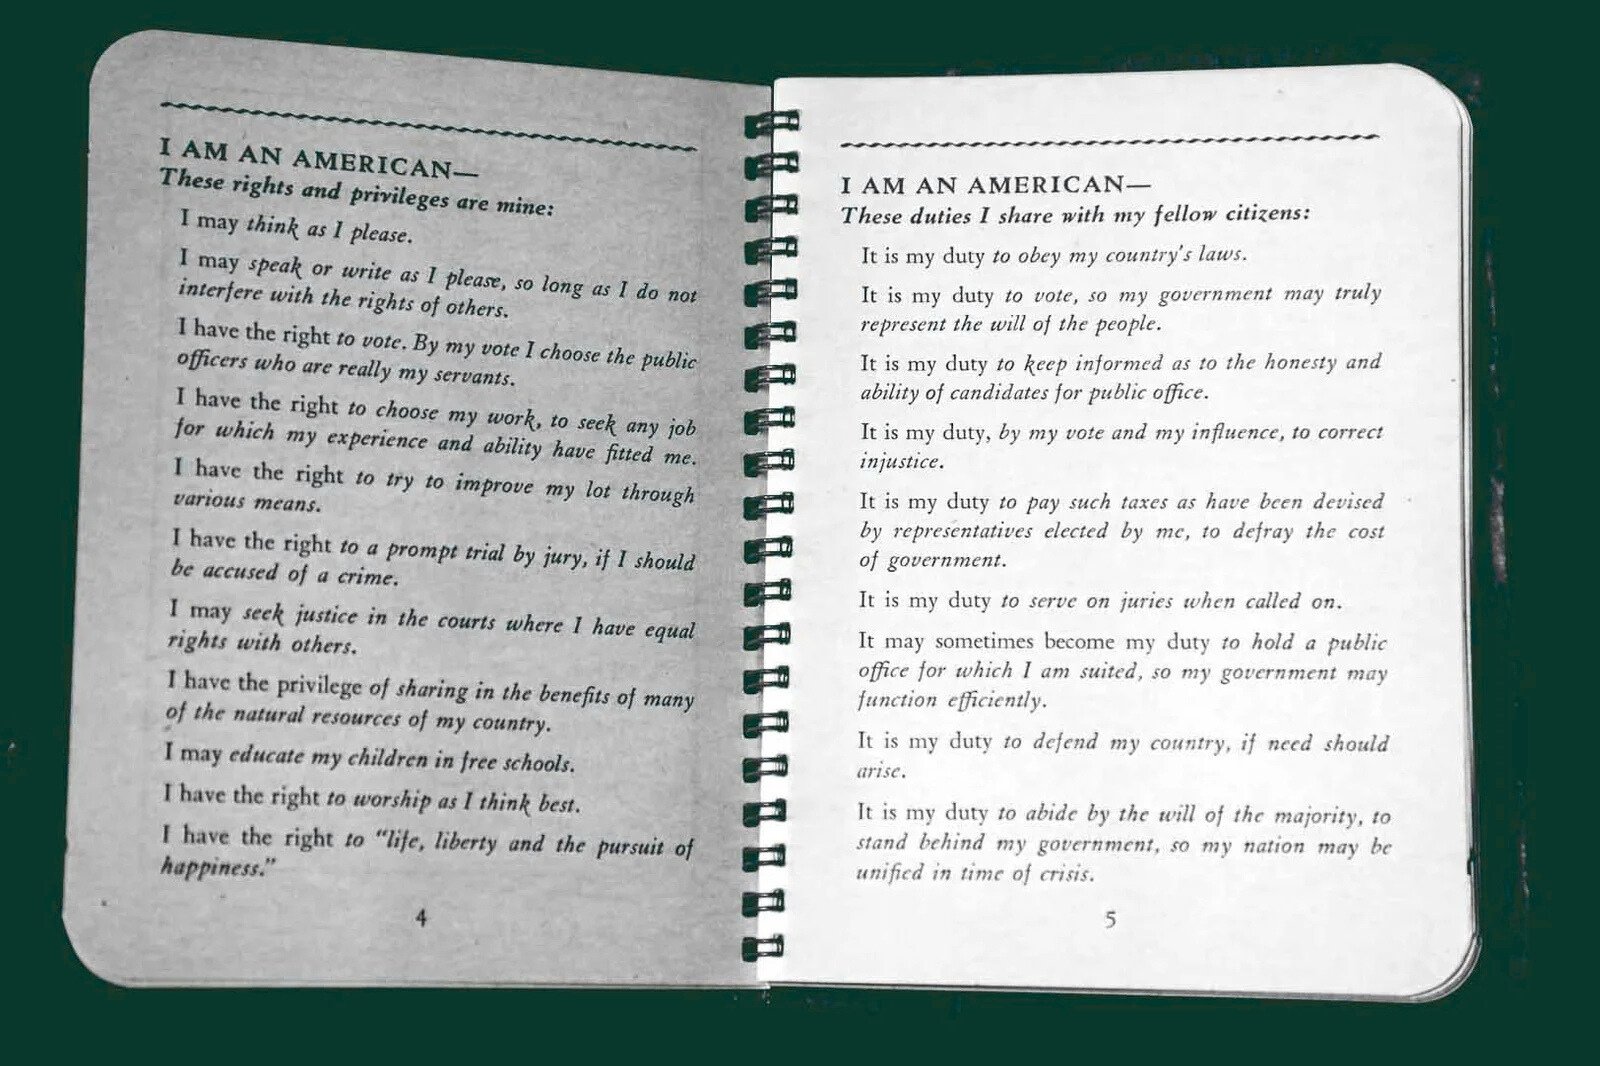 I AM AN AMERICAN—
These rights and privileges are mine:
I may think as I please.
I may speak or write as I please, so long as I do not
interfere with the rights of others.
I have the right to vote. By my vote I choose the public
officers who are really my servants.
I have the right to choose my work, to seek any job
for which my experience and ability have fitted me.
I have the right to try to improve my lot through
various means.
I have the right to a prompt trial by jury, if I should
be accused of a crime.
I may seek justice in the courts where I have equal
rights with others.
I have the privilege of sharing in the benefits of many
of the natural resources of my country.
I may educate my children in free schools.
I have the right to worship as I think best.
I have the right to “life, liberty and the pursuit of
happiness.”
4
I AM AN AMERICAN—
These duties I share with my fellow citizens:
It is my duty to obey my country's laws.
It is my duty to vote, so my government may truly
represent the will of the people.
It is my duty to keep informed as to the honesty and
ability of candidates for public office.
It is my duty, by my vote and my influence, to correct
injustice.
It is my duty to pay such taxes as have been devised
by representatives elected by me, to defray the cost
of government.
It is my duty to serve on juries when called on.
It may sometimes become my duty to hold a public
office for which I am suited, so my government may
function efficiently.
It is my duty to defend my country, if need should
arise.
It is my duty to abide by the will of the majority, to
stand behind my government, so my nation may be
unified in time of crisis.
5